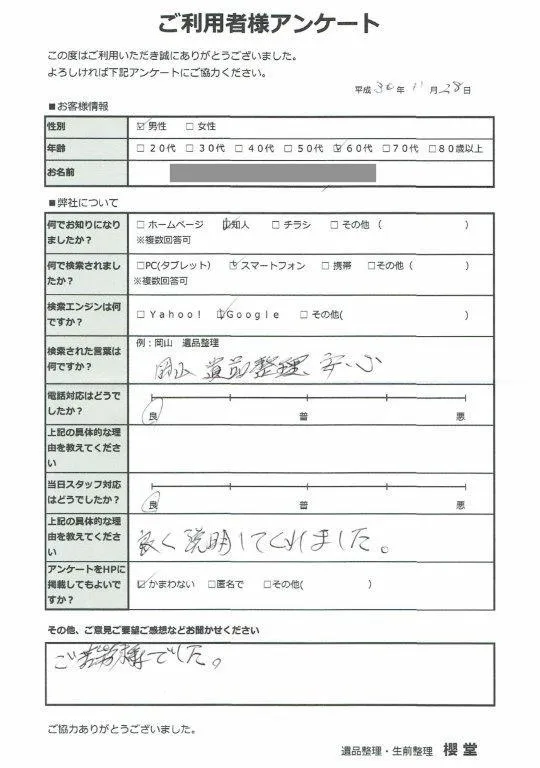 ご利用者様アンケート
この度はご利用いただき誠にありがとうございました。
よろしければ下記アンケートにご協力ください。
平成 30 年 11 月 28 日
■お客様情報
性別 ☑男性 □女性
年齢 □20代 □30代 □40代 □50代 ☑60代 □70代 □80歳以上
お名前
■弊社について
何でお知りになりましたか？ □ホームページ ☑知人 □チラシ □その他（ ）
※複数回答可
何で検索されましたか？ □PC(タブレット) ☑スマートフォン □携帯 □その他（ ）
※複数回答可
検索エンジンは何ですか？ □Yahoo! ☑Google □その他( )
検索された言葉は何ですか？ 例：岡山 遺品整理
岡山 遺品整理 安心
電話対応はどうでしたか？ 良 普 悪
上記の具体的な理由を教えてください
当日スタッフ対応はどうでしたか？ 良 普 悪
上記の具体的な理由を教えてください 良く説明してくれました。
アンケートをHPに掲載してもよいですか？ ☑かまわない □匿名で □その他( )
その他、ご意見ご要望ご感想などお聞かせください
でした。
ご協力ありがとうございました。
遺品整理・生前整理 櫻堂